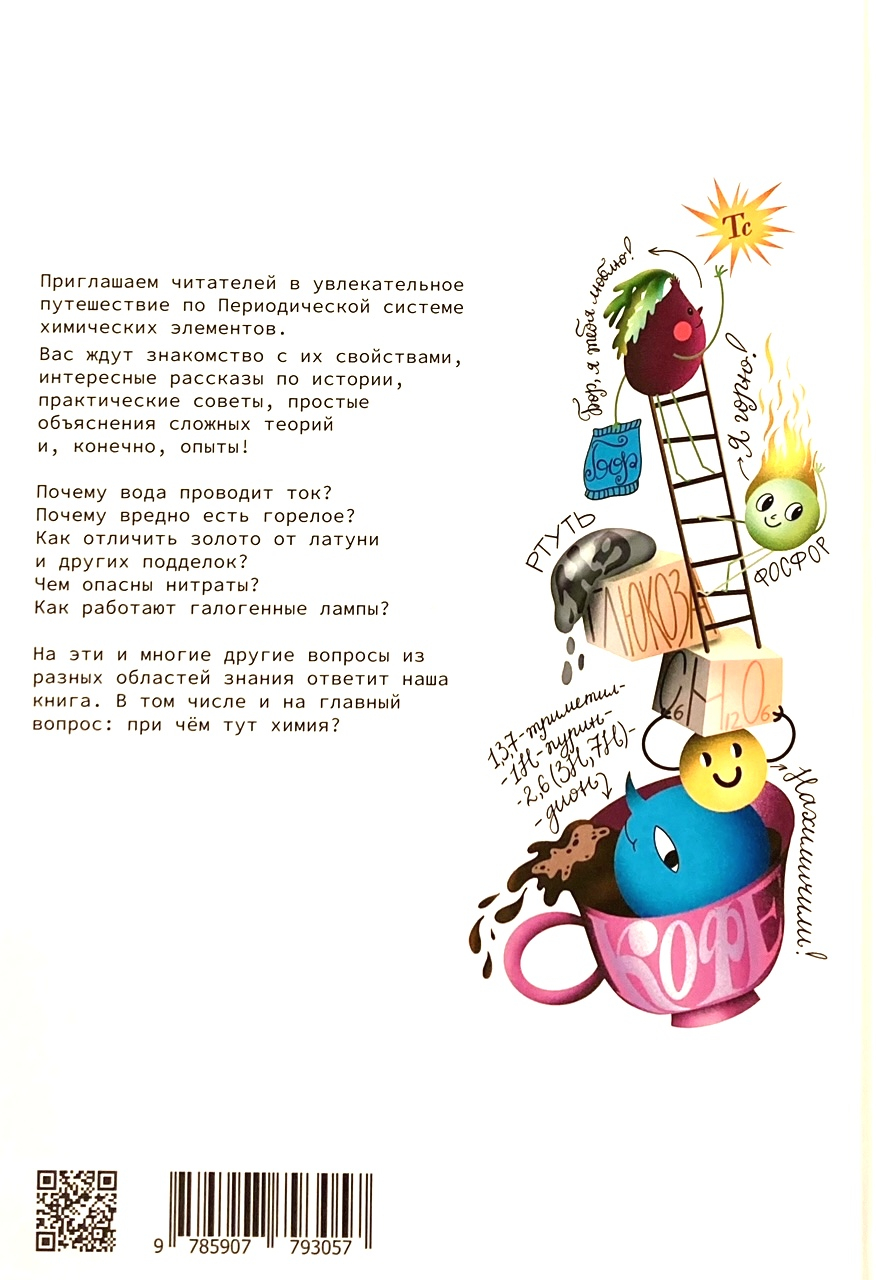 Приглашаем читателей в увлекательное
путешествие по Периодической системе
химических элементов.
Вас ждут знакомство с их свойствами,
интересные рассказы по истории,
практические советы, простые
объяснения сложных теорий
и, конечно, опыты!
Почему вода проводит ток?
Почему вредно есть горелое?
Как отличить золото от латуни
и других подделок?
Чем опасны нитраты?
Как работают галогенные лампы?
На эти и многие другие вопросы из
разных областей знания ответит наша
книга. В том числе и на главный
вопрос: при чём тут химия?
Tc
Бор, я тебя люблю!
Я горю!
Бор
РТУТЬ
ФОСФОР
ГЛЮКОЗА
C6H12O6
1,3,7-триметил-
-1H-пурин-
-2,6(3H,7H)-
-дион
Нахимичили!
КОФЕ
9 785907 793057